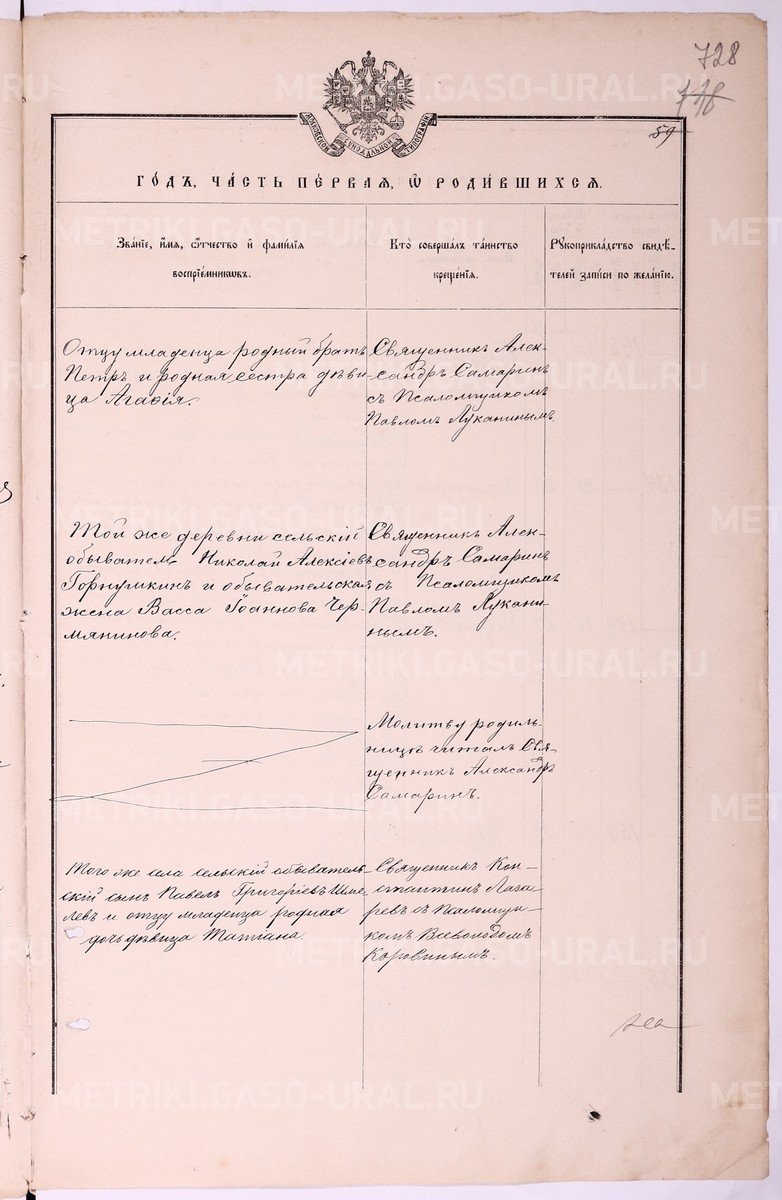 728
718
59
МОСКОВСКОЙ СѴНОДАЛЬНОЙ ТИПОГРАФІИ
ГО́ДЪ, ЧА́СТЬ ПЕ́РВАЯ, Ѽ РОДИ́ВШИХСЯ.
Зва́нїе, и҆́мя, ѻ҆́тчество и҆ фами́лїѧ
воспрїе́мникѡвъ.
Кто̀ соверша́лъ та́инство
креще́нїѧ.
Рꙋкоприкла́дство свидѣ́-
телей за́писи по жела́нїю.
Отцу младенца родный братъ
Петръ и родная сестра дѣви-
ца Агафія.
Священникъ Алек-
сандръ Самаринъ
съ Псаломщикомъ
Павломъ Луканинымъ.
Той же деревни сельскій
обыватель Николай Алексіевъ
Горнушкинъ и обывательская
жена Васса Іоаннова Чер-
мянинова.
Священникъ Алек-
сандръ Самаринъ
съ Псаломщикомъ
Павломъ Лукани-
нымъ.
Молитву родиль-
ницѣ читалъ Свя-
щенникъ Александръ
Самаринъ.
Того же села сельскій обыватель-
скій сынъ Павелъ Григоріевъ Шме-
левъ и отцу младенца родная
дочь дѣвица Татіана.
Священникъ Кон-
стантинъ Лаза-
ревъ съ Псаломщи-
комъ Всеволодомъ
Коровинымъ.
METRIKI.GASO-URAL.RU